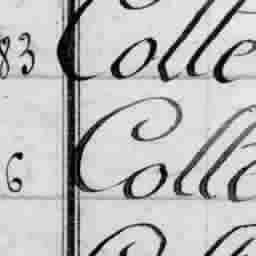 83 Colle
6 Colle